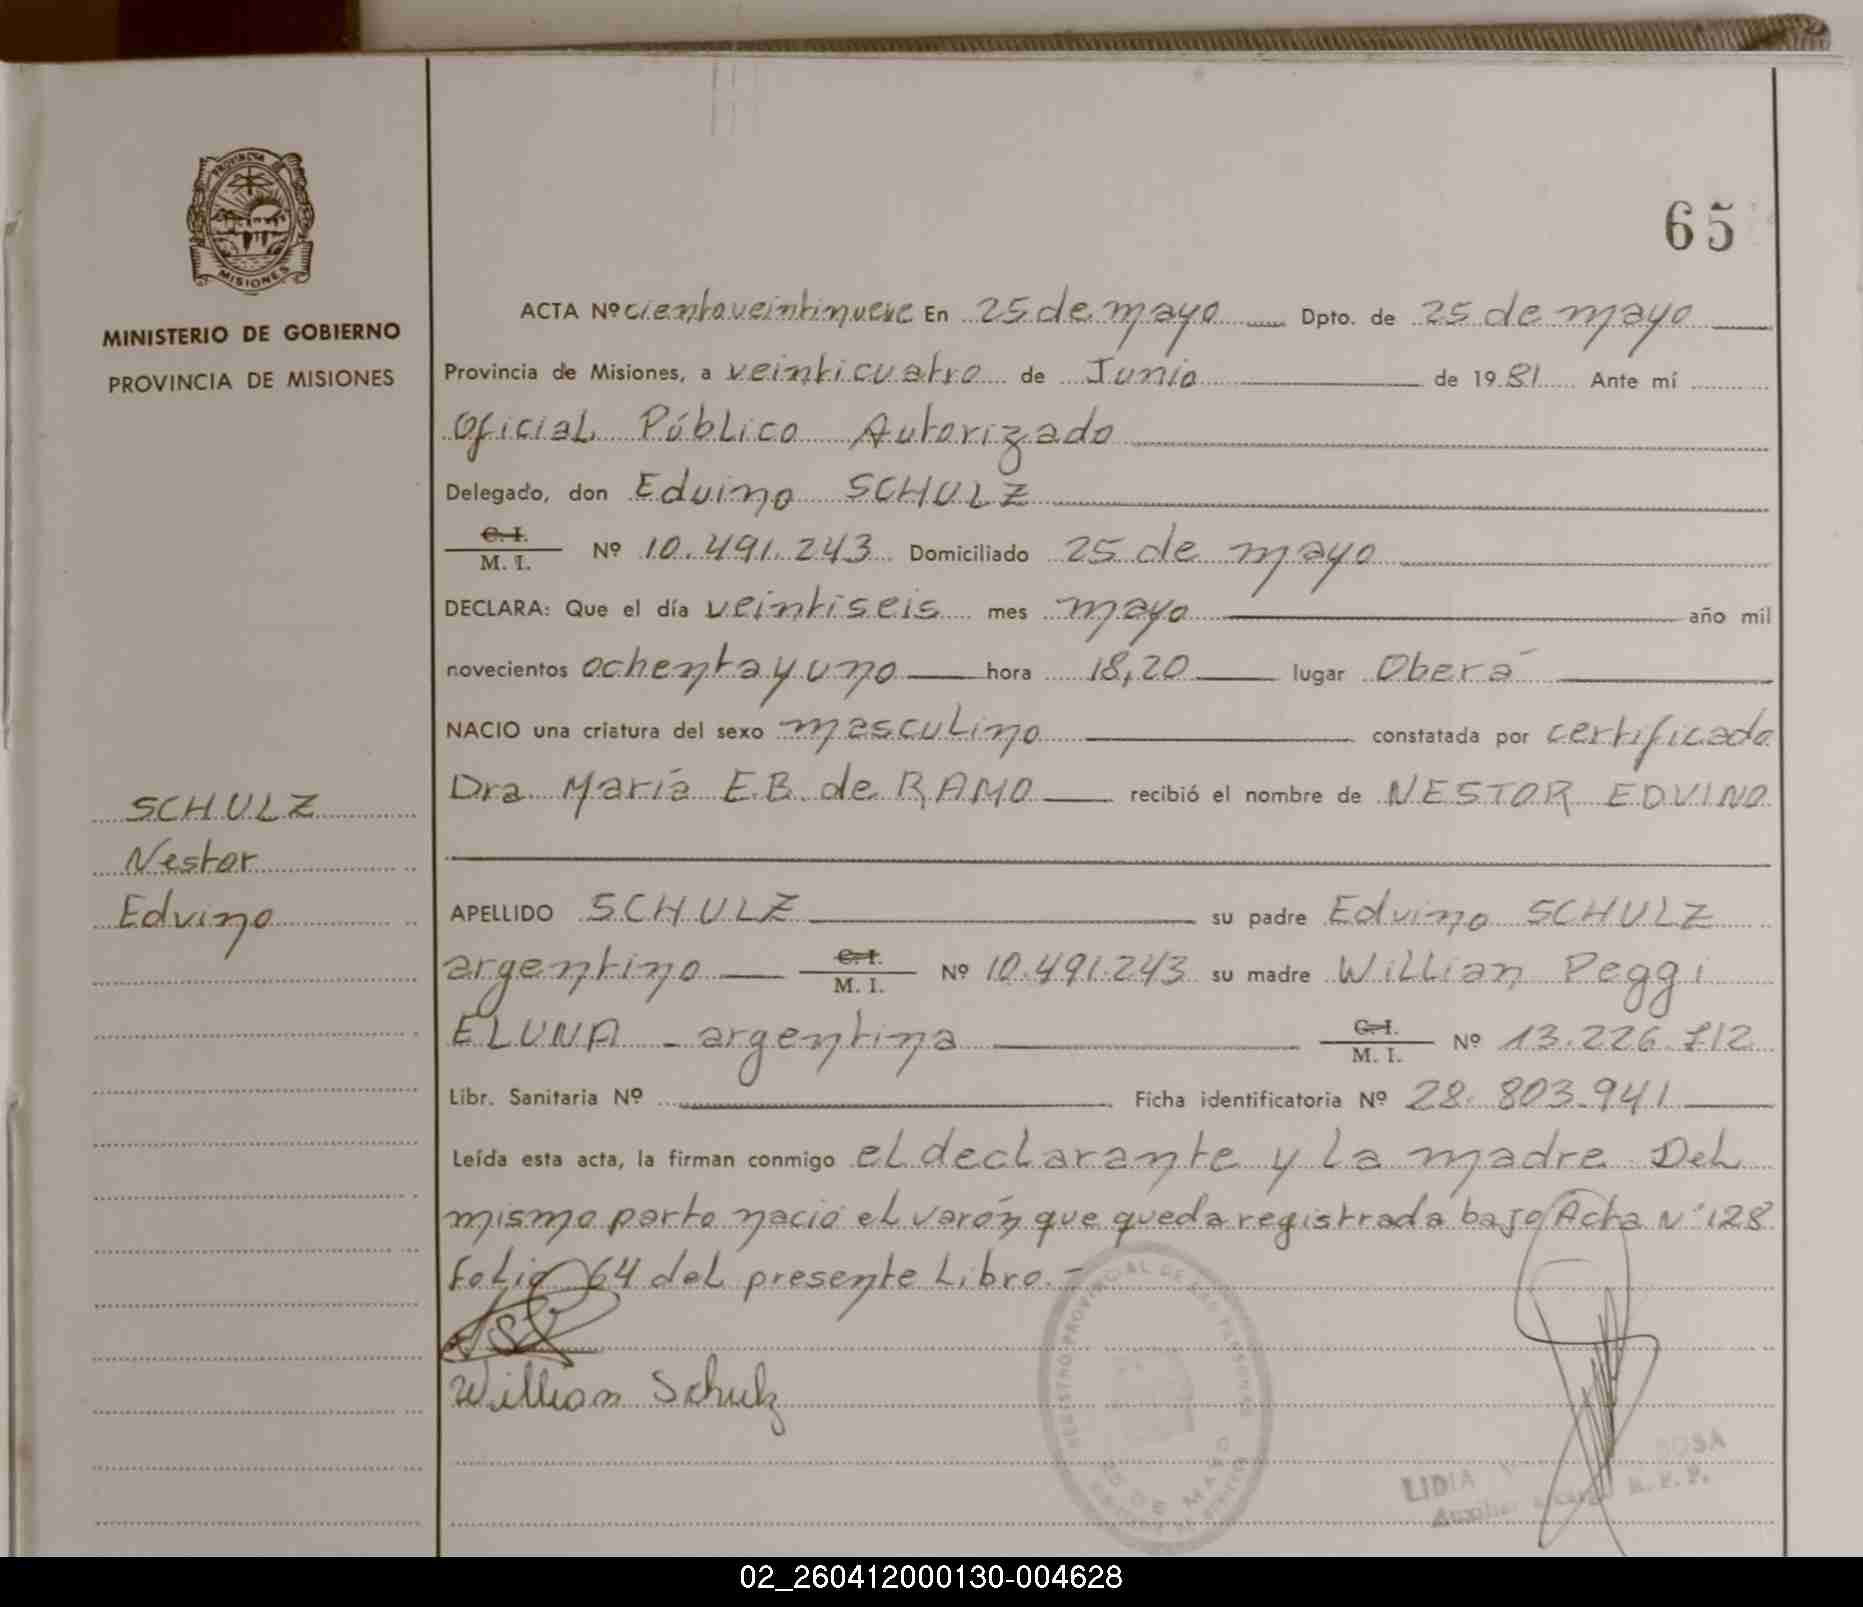 PROVINCIA DE
MISIONES
MINISTERIO DE GOBIERNO
PROVINCIA DE MISIONES
SCHULZ
Nestor
Edvino
65
ACTA Nº cientoveintinueve En 25 de mayo Dpto. de 25 de mayo
Provincia de Misiones, a veinticuatro de Junio de 1981 Ante mí
Oficial Público Autorizado
Delegado, don Edvino SCHULZ
C. I.
M. I. Nº 10.491.243 Domiciliado 25 de mayo
DECLARA: Que el día veintiseis mes mayo año mil
novecientos ochenta y uno hora 18,20 lugar Oberá
NACIO una criatura del sexo masculino constatada por certificado
Dra María E.B. de RAMO recibió el nombre de NESTOR EDVINO
APELLIDO SCHULZ su padre Edvino SCHULZ
argentino C. I. M. I. Nº 10.491.243 su madre Willian Peggi
ELUNA - argentina C. I. M. I. Nº 13.226.712
Libr. Sanitaria Nº Ficha identificatoria Nº 28.803.941
Leída esta acta, la firman conmigo el declarante y la madre Del
mismo parto nació el varón que queda registrada bajo Acta Nº 128
folio 64 del presente Libro.-
Willian Schulz
REGISTRO PROVINCIAL DE LAS PERSONAS
25 DE MAYO
LIDIA
02_260412000130-004628